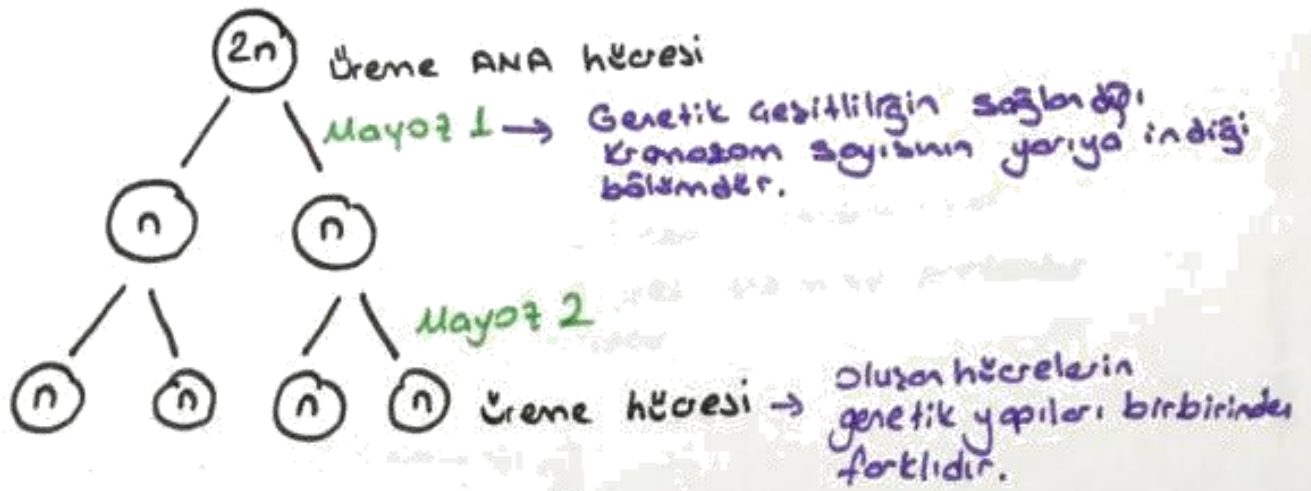 2n
üreme ANA hücresi
Mayoz 1 → Genetik çeşitliliğin sağlandığı
kromozom sayısının yarıya indiği
bölümdür.
n n
Mayoz 2
n n n n
üreme hücresi → oluşan hücrelerin
genetik yapıları birbirinden
farklıdır.